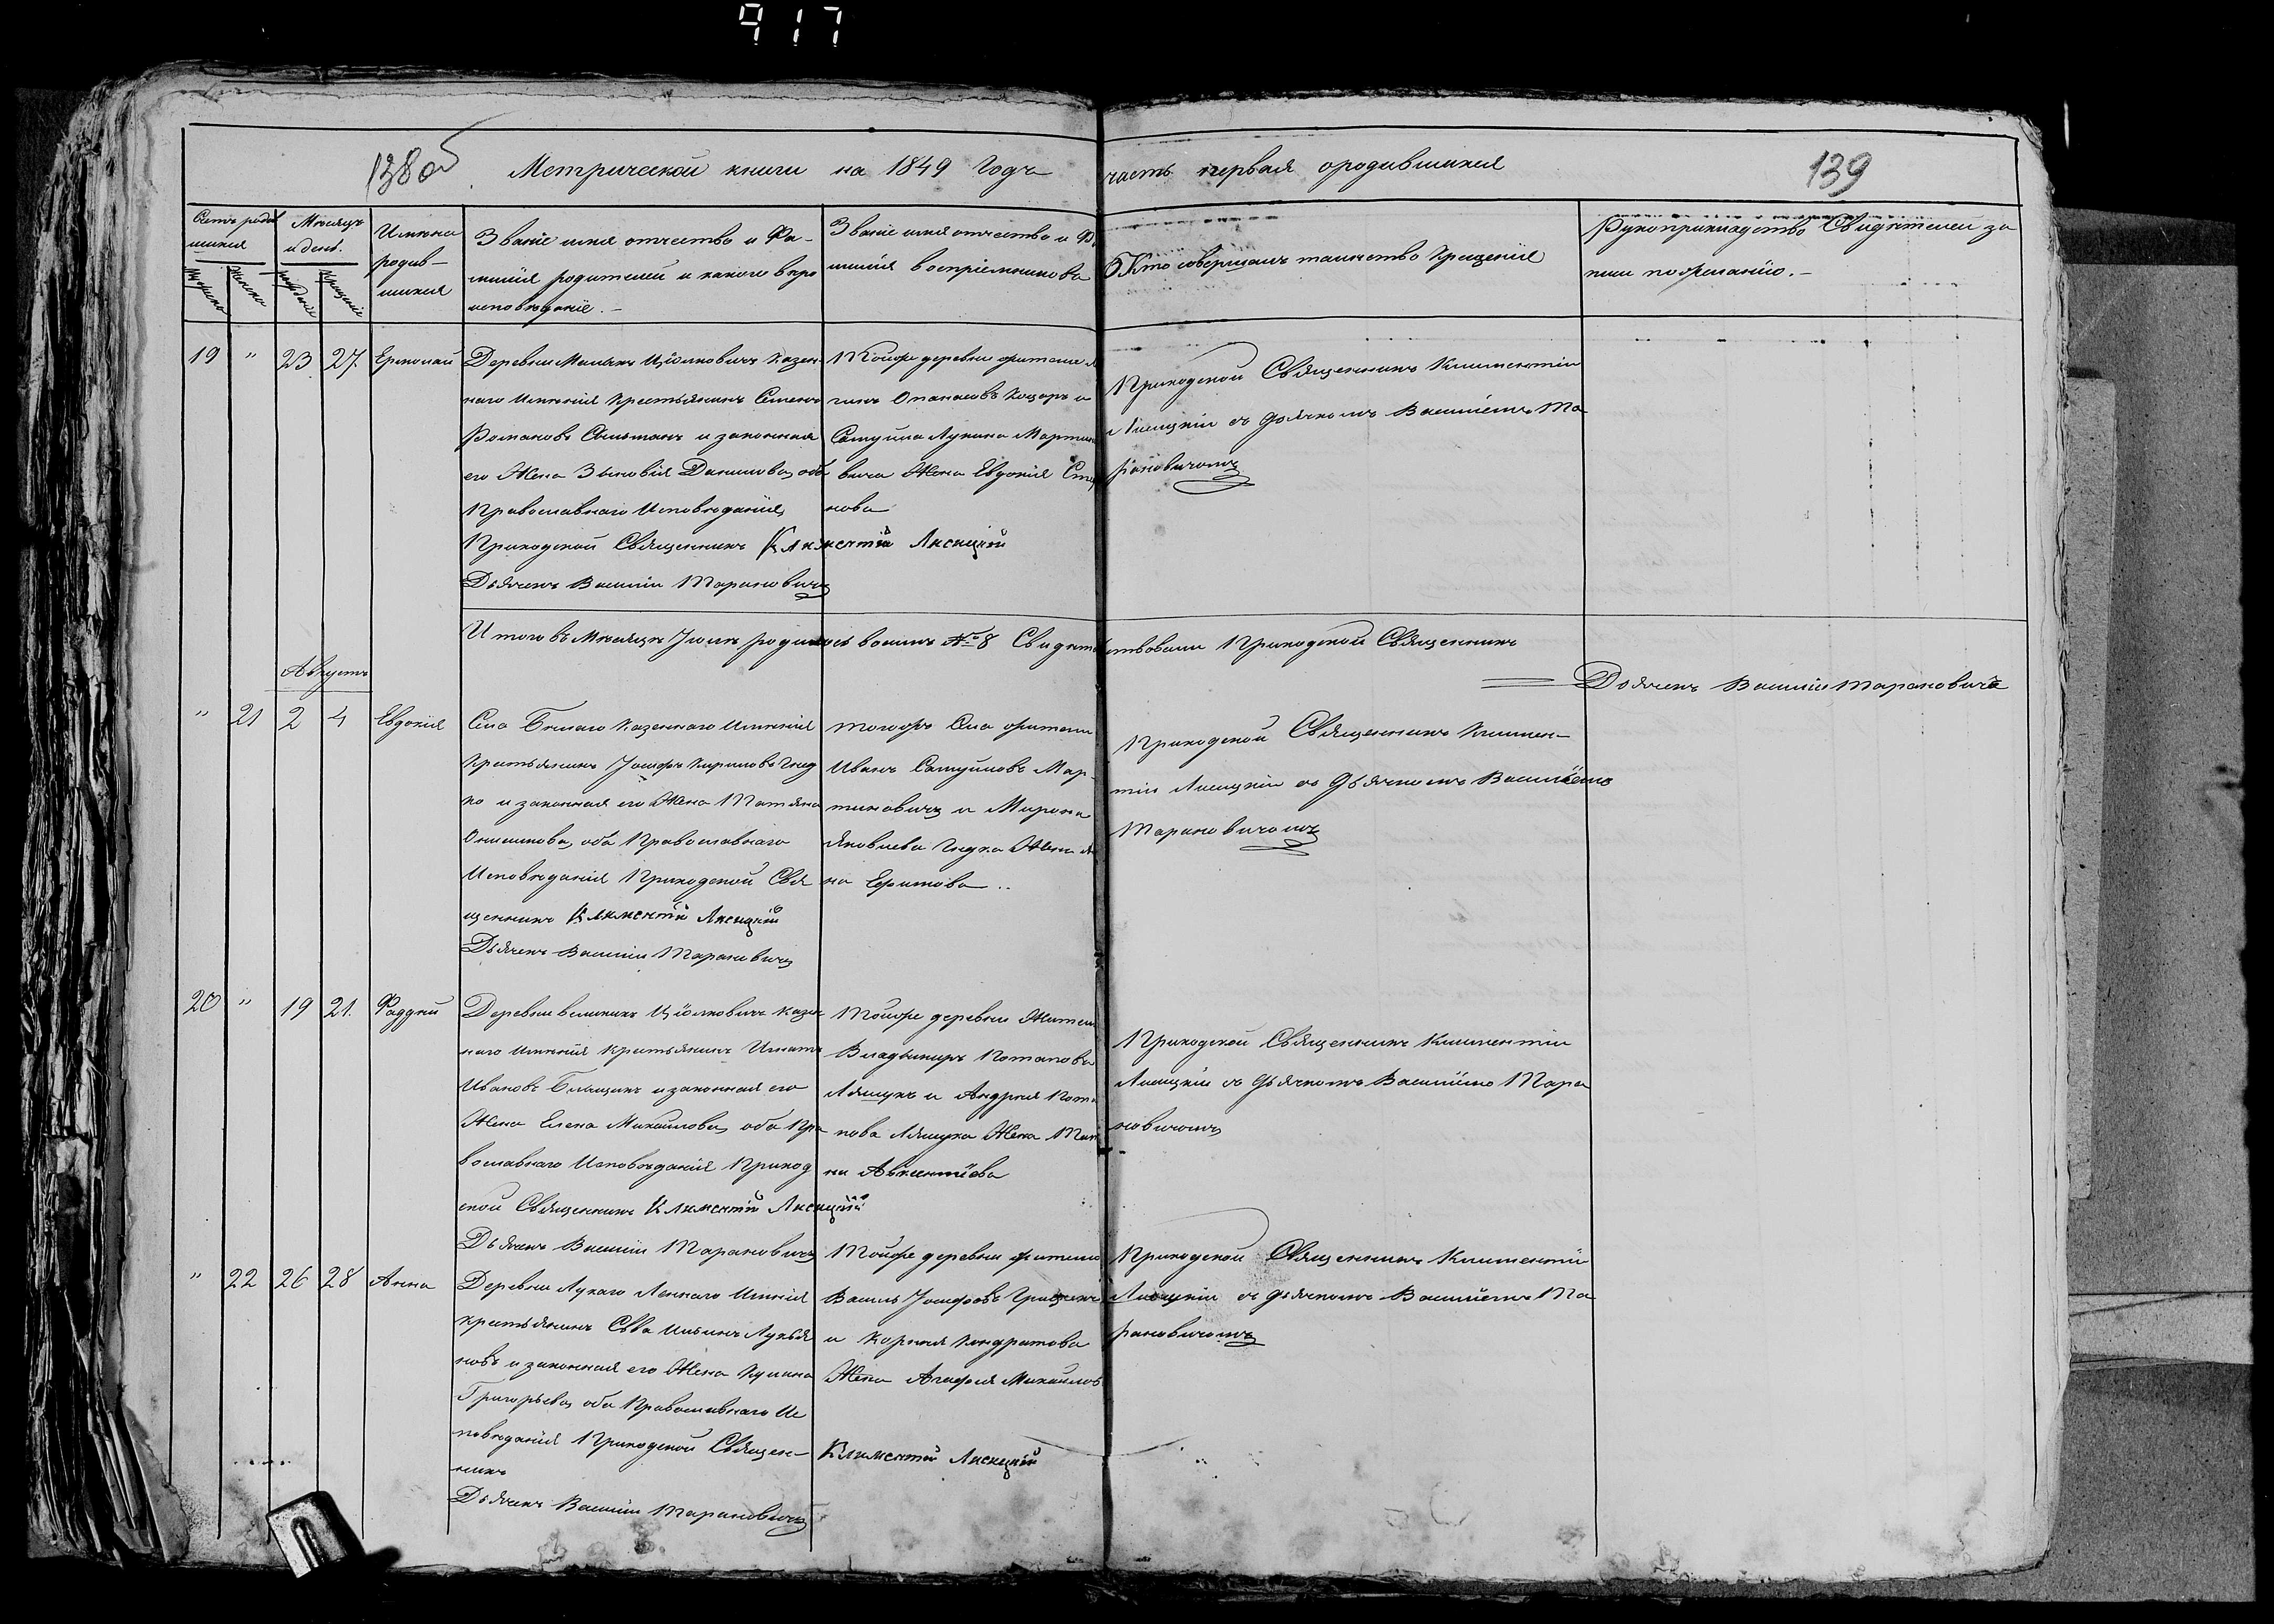 917
138об
Метрической книги на 1849 Годъ часть первая ородившихся
139
Счетъ родив
шихся
Мѣсяцъ
и день.
Имена
родив-
шихся
Званіе имя отчество и Фа-
милія родителей и какого вѣро
исповѣданіе.-
Званіе имя отчество и Фа
милія воспріемниковъ
Кто совершалъ таинство Крещенія
Рукоприкладство Свидѣтелей за
писи по желанію.-
19 " 23 27. Ермолай
Деревни Малыхъ Цѣолковичъ Казен-
наго Имѣнія Крестьянинъ Семенъ
Романовъ и законная
его Жена Зѣновія Данилова, оба
Православнаго Исповѣданія,
Приходской Священникъ Климентій Лисицкій
Дьячекъ Василій Тарановичъ
Тойже деревни жители
Опанасовъ и
Самуила Лукина Мартино
вича Жена Евдокія
нова
Приходской Священникъ Климентій
Лисицкій съ дьячкомъ Василіемъ Та
рановичомъ
Итого въ Мѣсяцѣ Іюлѣ родилось восимъ № 8 Свидѣтельствовали Приходской Священникъ
Дьячекъ Василій Тарановичъ
Августъ
" 21 2 4 Евдокія
Села Бѣлаго Казеннаго Имѣнія
Крестьянинъ Іосифъ Кириловъ Гнед
ко и законная его Жена Татьяна
Онисимова, оба Православнаго
Исповѣданія Приходской Свя
щенникъ Климентій Лисицкій
Дьячекъ Василій Тарановичъ
тогожъ Села жители
Иванъ Самуиловъ Мар-
тиновичъ и Мирона
Яковлева Гнедка Жена Ян
на Ефимова..
Приходской Священникъ Климен-
тій Лисицкій съ дьячкомъ Василіемъ
Тарановичомъ
20 " 19 21. Фаддей
Деревни великихъ Цѣолковичъ казен
наго имѣнія крестьянинъ Игнатъ
Ивановъ и законная его
Жена Елена Михайлова, оба Пра
вославнаго Исповѣданія Приход
ской Священникъ Климентій Лисицкій
Дьячекъ Василій Тарановичъ
Тойже деревни Жители
Владымиръ Потаповъ
Ляшукъ и Андрея Пота
пова Ляшука Жена
на Авксентіева
Приходской Священникъ Климентій
Лисицкій съ дьячкомъ Василіемъ Тара
новичомъ
" 22 26 28 Анна
Деревни Лукаго Леннаго Имѣнія
крестьянинъ Савва Ильинъ Лукья
новъ и законная его Жена
Григорьева, оба Православнаго Ис
повѣданія Приходской Священ-
никъ Климентій Лисицкій
Дьячекъ Василій Тарановичъ
Тойже деревни жители
Василь Іосифовъ
и Корнея Кондратова
Жена Агафія Михайлова
Приходской Священникъ Климентій
Лисицкій съ дьячкомъ Василіемъ Та
рановичомъ